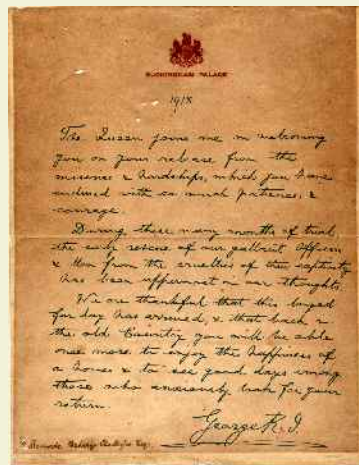 BUCKINGHAM PALACE
1918
The Queen joins me in welcoming
you on your release from the
miseries & hardships, which you have
endured with so much patience &
courage.
During these many months of trial,
the early rescue of our gallant Officers
& Men from the cruelties of their captivity
has been uppermost in our thoughts.
We are thankful that this longed
for day has arrived, & that back in
the old Country you will be able
once more to enjoy the happiness of
a home & to see good days among
those who anxiously look for your
return.
George R.I.